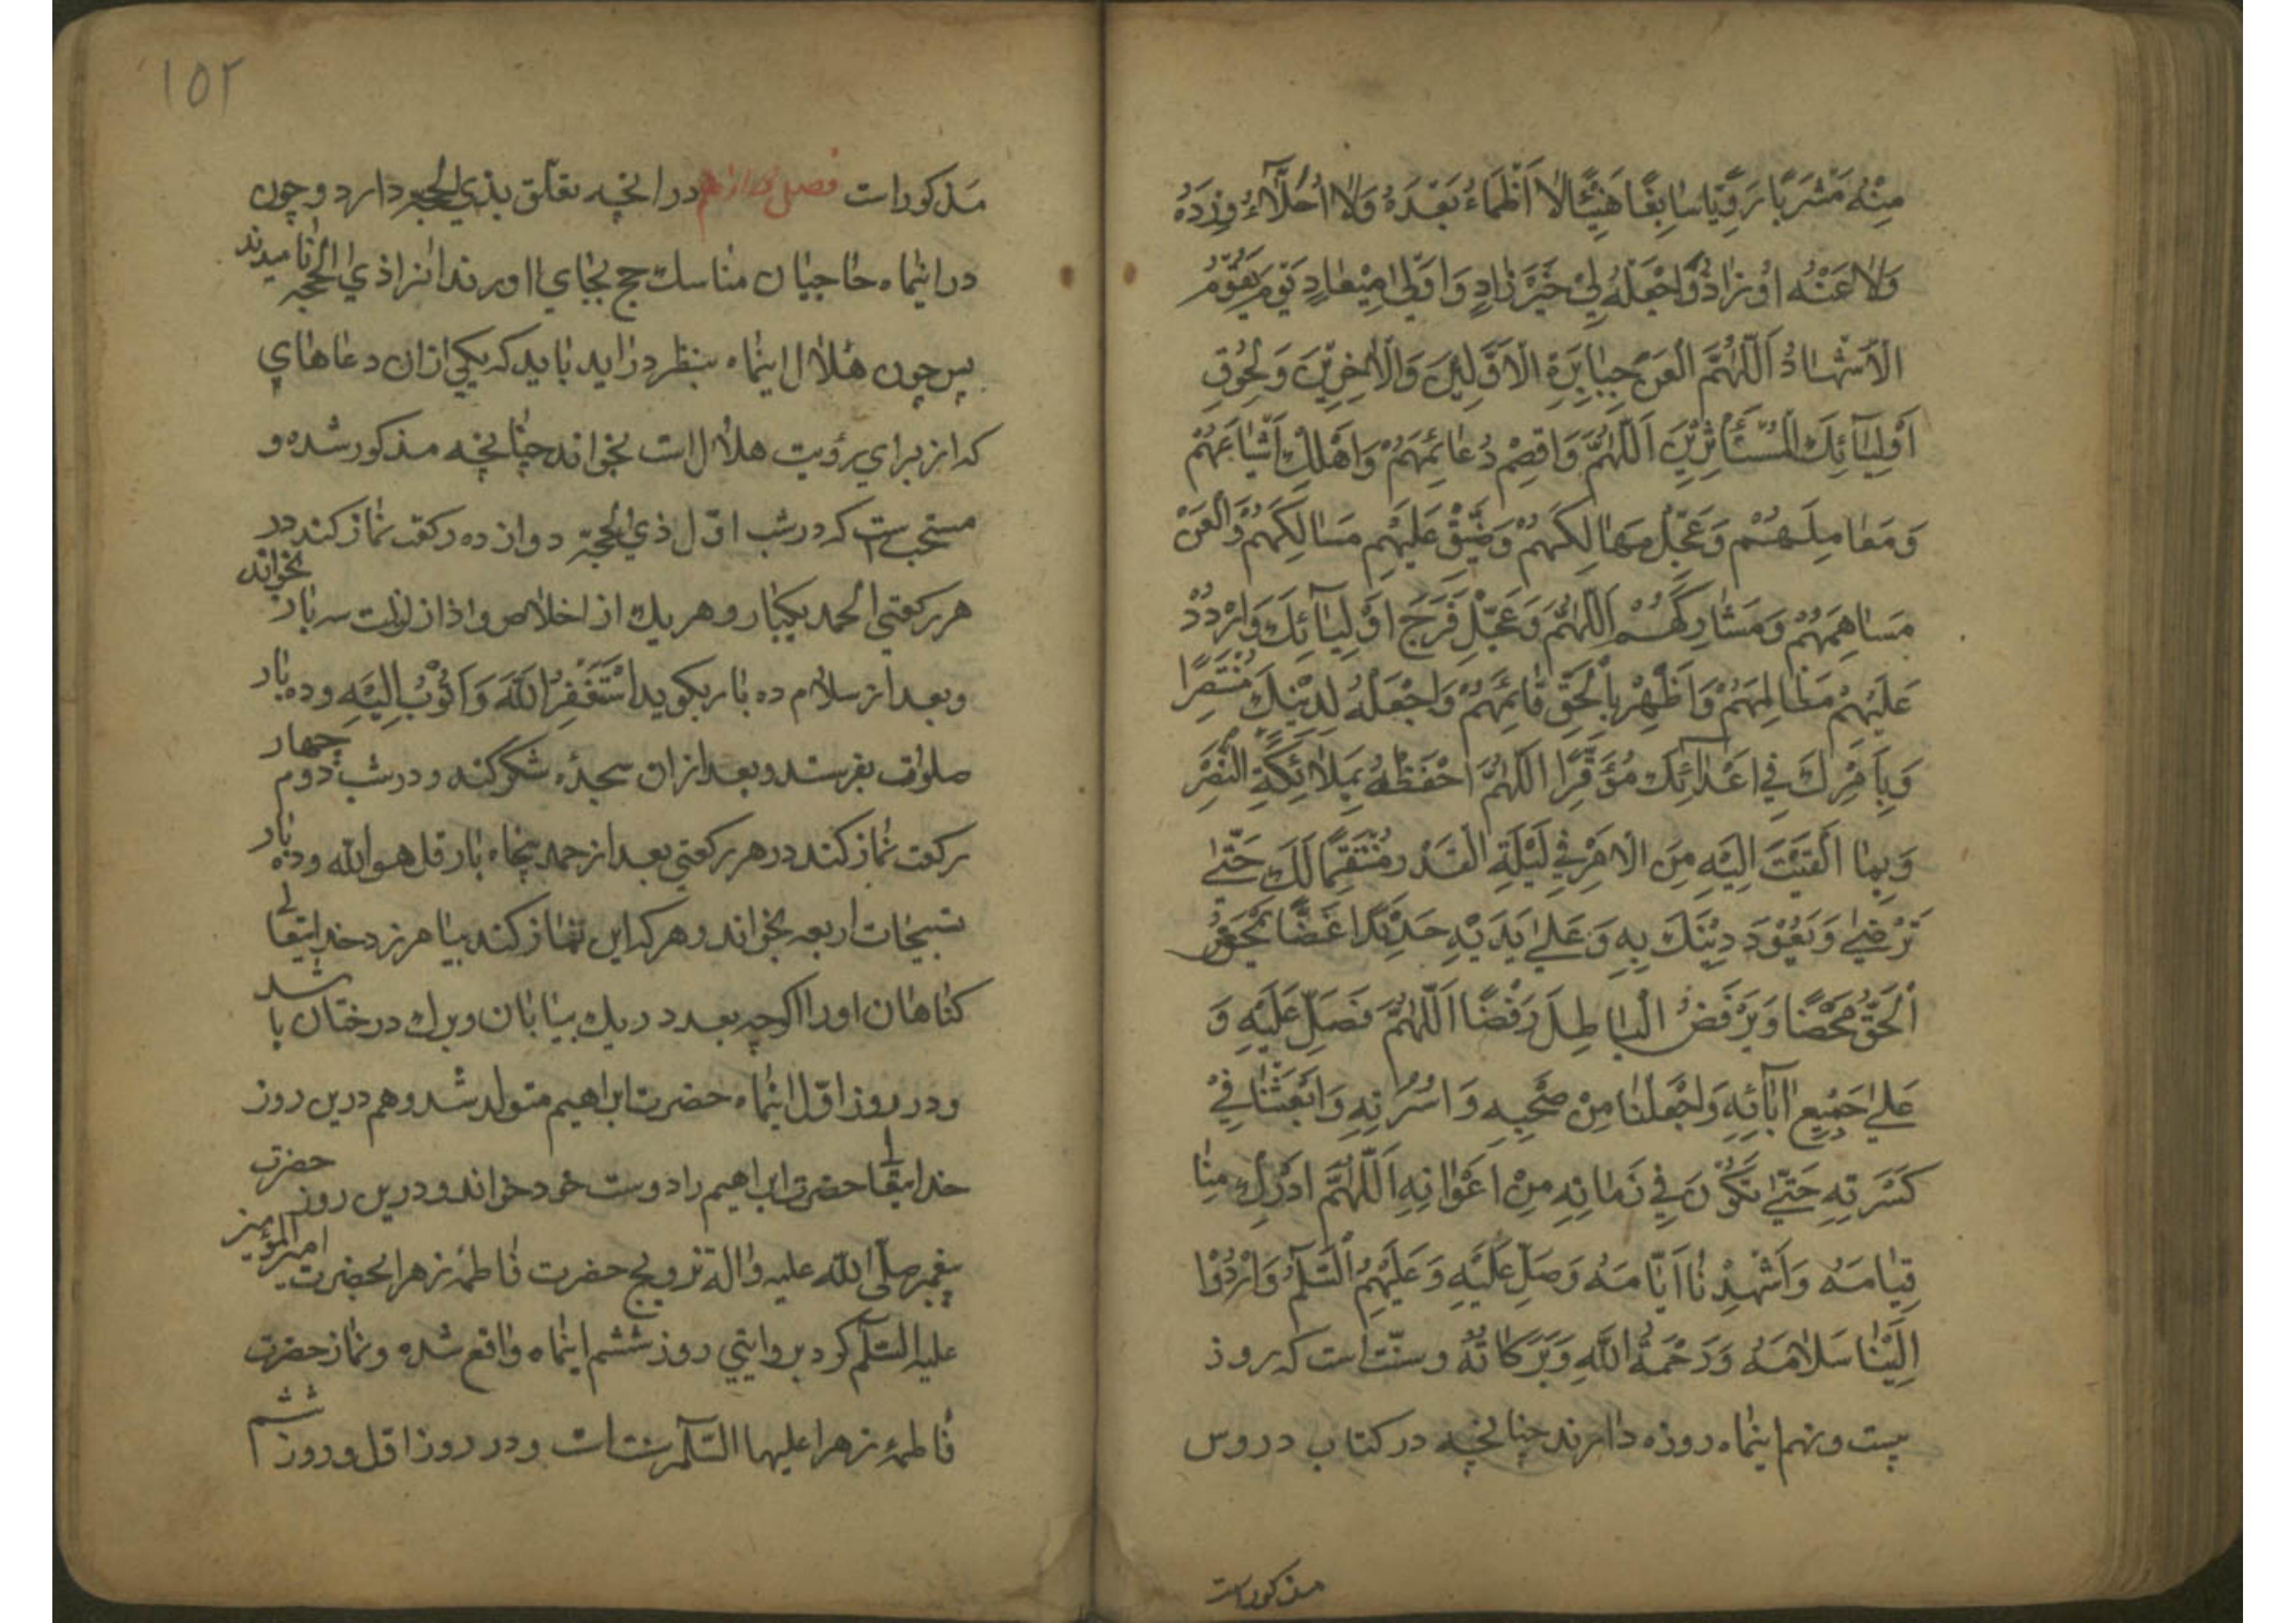 مِنْهُ مَشْرَبًا رَوِیًّا سَابِغًا هَنِیْئًا لَا اَظْمَاءُ بَعْدَهُ وَلَا اُحَلَّاءُ وِرْدَهُ
وَلَا عَنْهُ اُوْزَادُ وَاجْعَلْهُ لِيْ خَیْرَ زَادٍ وَاَوْفٰی مِیْعَادٍ یَوْمَ یَقُوْمُ
الْاَشْهَادُ اَللّٰهُمَّ الْعَنْ جَبَابِرَةَ الْاَوَّلِیْنَ وَالْاٰخِرِیْنَ وَلِحُقُوْقِ
اَوْلِیَآئِكَ الْمُسْتَأْثِرِیْنَ اَللّٰهُمَّ وَاقْصِمْ دُعَائِمَهُمْ وَاَهْلِكْ اَشْیَاعَهُمْ
وَعَامِلَهُمْ وَعَجِّلْ مَهَالِكَهُمْ وَضَیِّقْ عَلَیْهِمْ مَسَالِكَهُمْ وَالْعَنْ
مَسَاهِمَهُمْ وَمَشَارِكَهُمْ اَللّٰهُمَّ وَعَجِّلْ فَرَجَ اَوْلِیَآئِكَ وَارْدُدْ
عَلَیْهِمْ مَظَالِمَهُمْ وَاَظْهِرْ بِالْحَقِّ قَائِمَهُمْ وَاجْعَلْهُ لِدِیْنِكَ مُنْتَصِرًا
وَبِاَمْرِكَ فِي اَعْدَآئِكَ مُؤَتَمِرًا اَللّٰهُمَّ احْفَظْهُ بِمَلَائِكَةِ النَّصْرِ
وَبِمَا اَلْقَیْتَ اِلَیْهِ مِنَ الْاَمْرِ فِي لَیْلَةِ الْقَدْرِ مُنْتَقِمًا لَكَ حَتّٰی
تَرْضٰی وَیَعُوْدَ دِیْنُكَ بِهِ وَعَلٰی یَدَیْهِ جَدِیْدًا غَضًّا وَیَمْحَضَ
الْحَقَّ مَحْضًا وَیَرْفَضَ الْبَاطِلَ رَفْضًا اَللّٰهُمَّ فَصَلِّ عَلَیْهِ وَ
عَلٰی جَمِیْعِ اٰبَآئِهِ وَاجْعَلْنَا مِنْ صَحْبِهِ وَاُسْرَتِهِ وَابْعَثْنَا فِيْ
كَرَّتِهِ حَتّٰی نَكُوْنَ فِي زَمَانِهِ مِنْ اَعْوَانِهِ اَللّٰهُمَّ ادْرِكْ مِنَا
قِیَامَهُ وَاَشْهِدْنَا اَیَّامَهُ وَصَلِّ عَلَیْهِ وَعَلَیْهِمُ السَّلَمُ وَارْدُدْ
اِلَیْنَا سَلَامَهُ وَرَحْمَةُ اللّٰهِ وَبَرَكَاتُهُ وسنّت است که روز
بیست و نهم اینماه روزه دارند چنانچه در کتاب دروس
مذکورست
۱۵۲
مذکورات فصل دوازدهم در انچه تعلّق بذي الحجه دارد و چون
در اینماه حاجیان مناسك حج بجای اورند انرا ذي الحجه نامیدند
پس چون هلال اینماه بنظر دراید باید که یکی ازان دعاهای
که از برای رؤیت هلال است بخواند چنانچه مذکور شده و
مستحب ست که در شب اوّل ذي الحجة دوازده رکعت نماز کند در
هر رکعتی الحمد یکبار و هریك از اخلاص واذا زلزلت سه بار بخواند
و بعد از سلام ده بار بگوید اَسْتَغْفِرُ اللّٰهَ وَاَتُوْبُ اِلَیْهِ و ده بار
صلوات بفرستد و بعد ازان سجدهٔ شکر کند و در شب دوم چهار
رکعت نماز کند در هر رکعتی بعد از حمد پنجاه بار قل هو الله و ده بار
تسبیحات اربعه بخواند و هرکه این نماز کند بیامرزد خدایتعالی
کناهان او را اگرچه بعدد ریك بیابان و برك درختان باشد
و در روز اوّل اینماه حضرت ابراهیم متولد شد و هم درین روز
خدایتعالی حضرت ابراهیم را دوست خود خواند و درین روز حضرت
پیغمبر صلّی الله علیه واله تزویج حضرت فاطمه زهرا بحضرت امیرالمؤمنین
علیه السّلم کرد و بروایتی روز ششم اینماه واقع شده و نماز حضرت
فاطمهٔ زهرا علیها السّلم سنت است و در روز اوّل و روز ششم